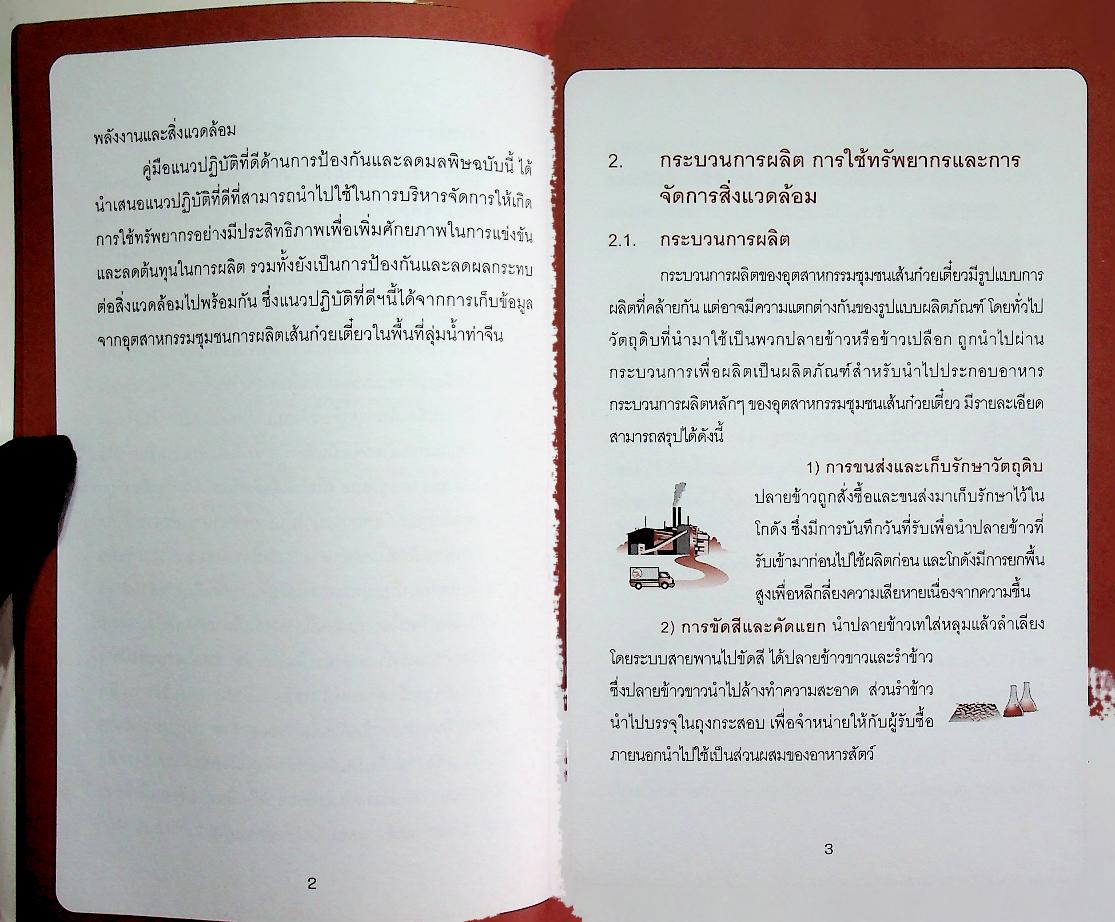 พลังงานและสิ่งแวดล้อม
คู่มือแนวปฏิบัติที่ดีด้านการป้องกันและลดมลพิษฉบับนี้ ได้
นำเสนอแนวปฏิบัติที่ดีที่สามารถนำไปใช้ในการบริหารจัดการให้เกิด
การใช้ทรัพยากรอย่างมีประสิทธิภาพเพื่อเพิ่มศักยภาพในการแข่งขัน
และลดต้นทุนในการผลิต รวมทั้งยังเป็นการป้องกันและลดผลกระทบ
ต่อสิ่งแวดล้อมไปพร้อมกัน ซึ่งแนวปฏิบัติที่ดีฯนี้ได้จากการเก็บข้อมูล
จากอุตสาหกรรมชุมชนการผลิตเส้นก๋วยเตี๋ยวในพื้นที่ลุ่มน้ำท่าจีน
2
2. กระบวนการผลิต การใช้ทรัพยากรและการ
จัดการสิ่งแวดล้อม
2.1. กระบวนการผลิต
กระบวนการผลิตของอุตสาหกรรมชุมชนเส้นก๋วยเตี๋ยวมีรูปแบบการ
ผลิตที่คล้ายกัน แต่อาจมีความแตกต่างกันของรูปแบบผลิตภัณฑ์ โดยทั่วไป
วัตถุดิบที่นำมาใช้เป็นพวกปลายข้าวหรือข้าวเปลือก ถูกนำไปผ่าน
กระบวนการเพื่อผลิตเป็นผลิตภัณฑ์สำหรับนำไปประกอบอาหาร
กระบวนการผลิตหลักๆ ของอุตสาหกรรมชุมชนเส้นก๋วยเตี๋ยว มีรายละเอียด
สามารถสรุปได้ดังนี้
1) การขนส่งและเก็บรักษาวัตถุดิบ
ปลายข้าวถูกสั่งซื้อและขนส่งมาเก็บรักษาไว้ใน
โกดัง ซึ่งมีการบันทึกวันที่รับเพื่อนำปลายข้าวที่
รับเข้ามาก่อนไปใช้ผลิตก่อน และโกดังมีการยกพื้น
สูงเพื่อหลีกลี่ยงความเสียหายเนื่องจากความชื้น
2) การขัดสีและคัดแยก นำปลายข้าวเทใส่หลุมแล้วลำเลียง
โดยระบบสายพานไปขัดสี ได้ปลายข้าวขาวและรำข้าว
ซึ่งปลายข้าวขาวนำไปล้างทำความสะอาด ส่วนรำข้าว
นำไปบรรจุในถุงกระสอบ เพื่อจำหน่ายให้กับผู้รับซื้อ
ภายนอกนำไปใช้เป็นส่วนผสมของอาหารสัตว์
3